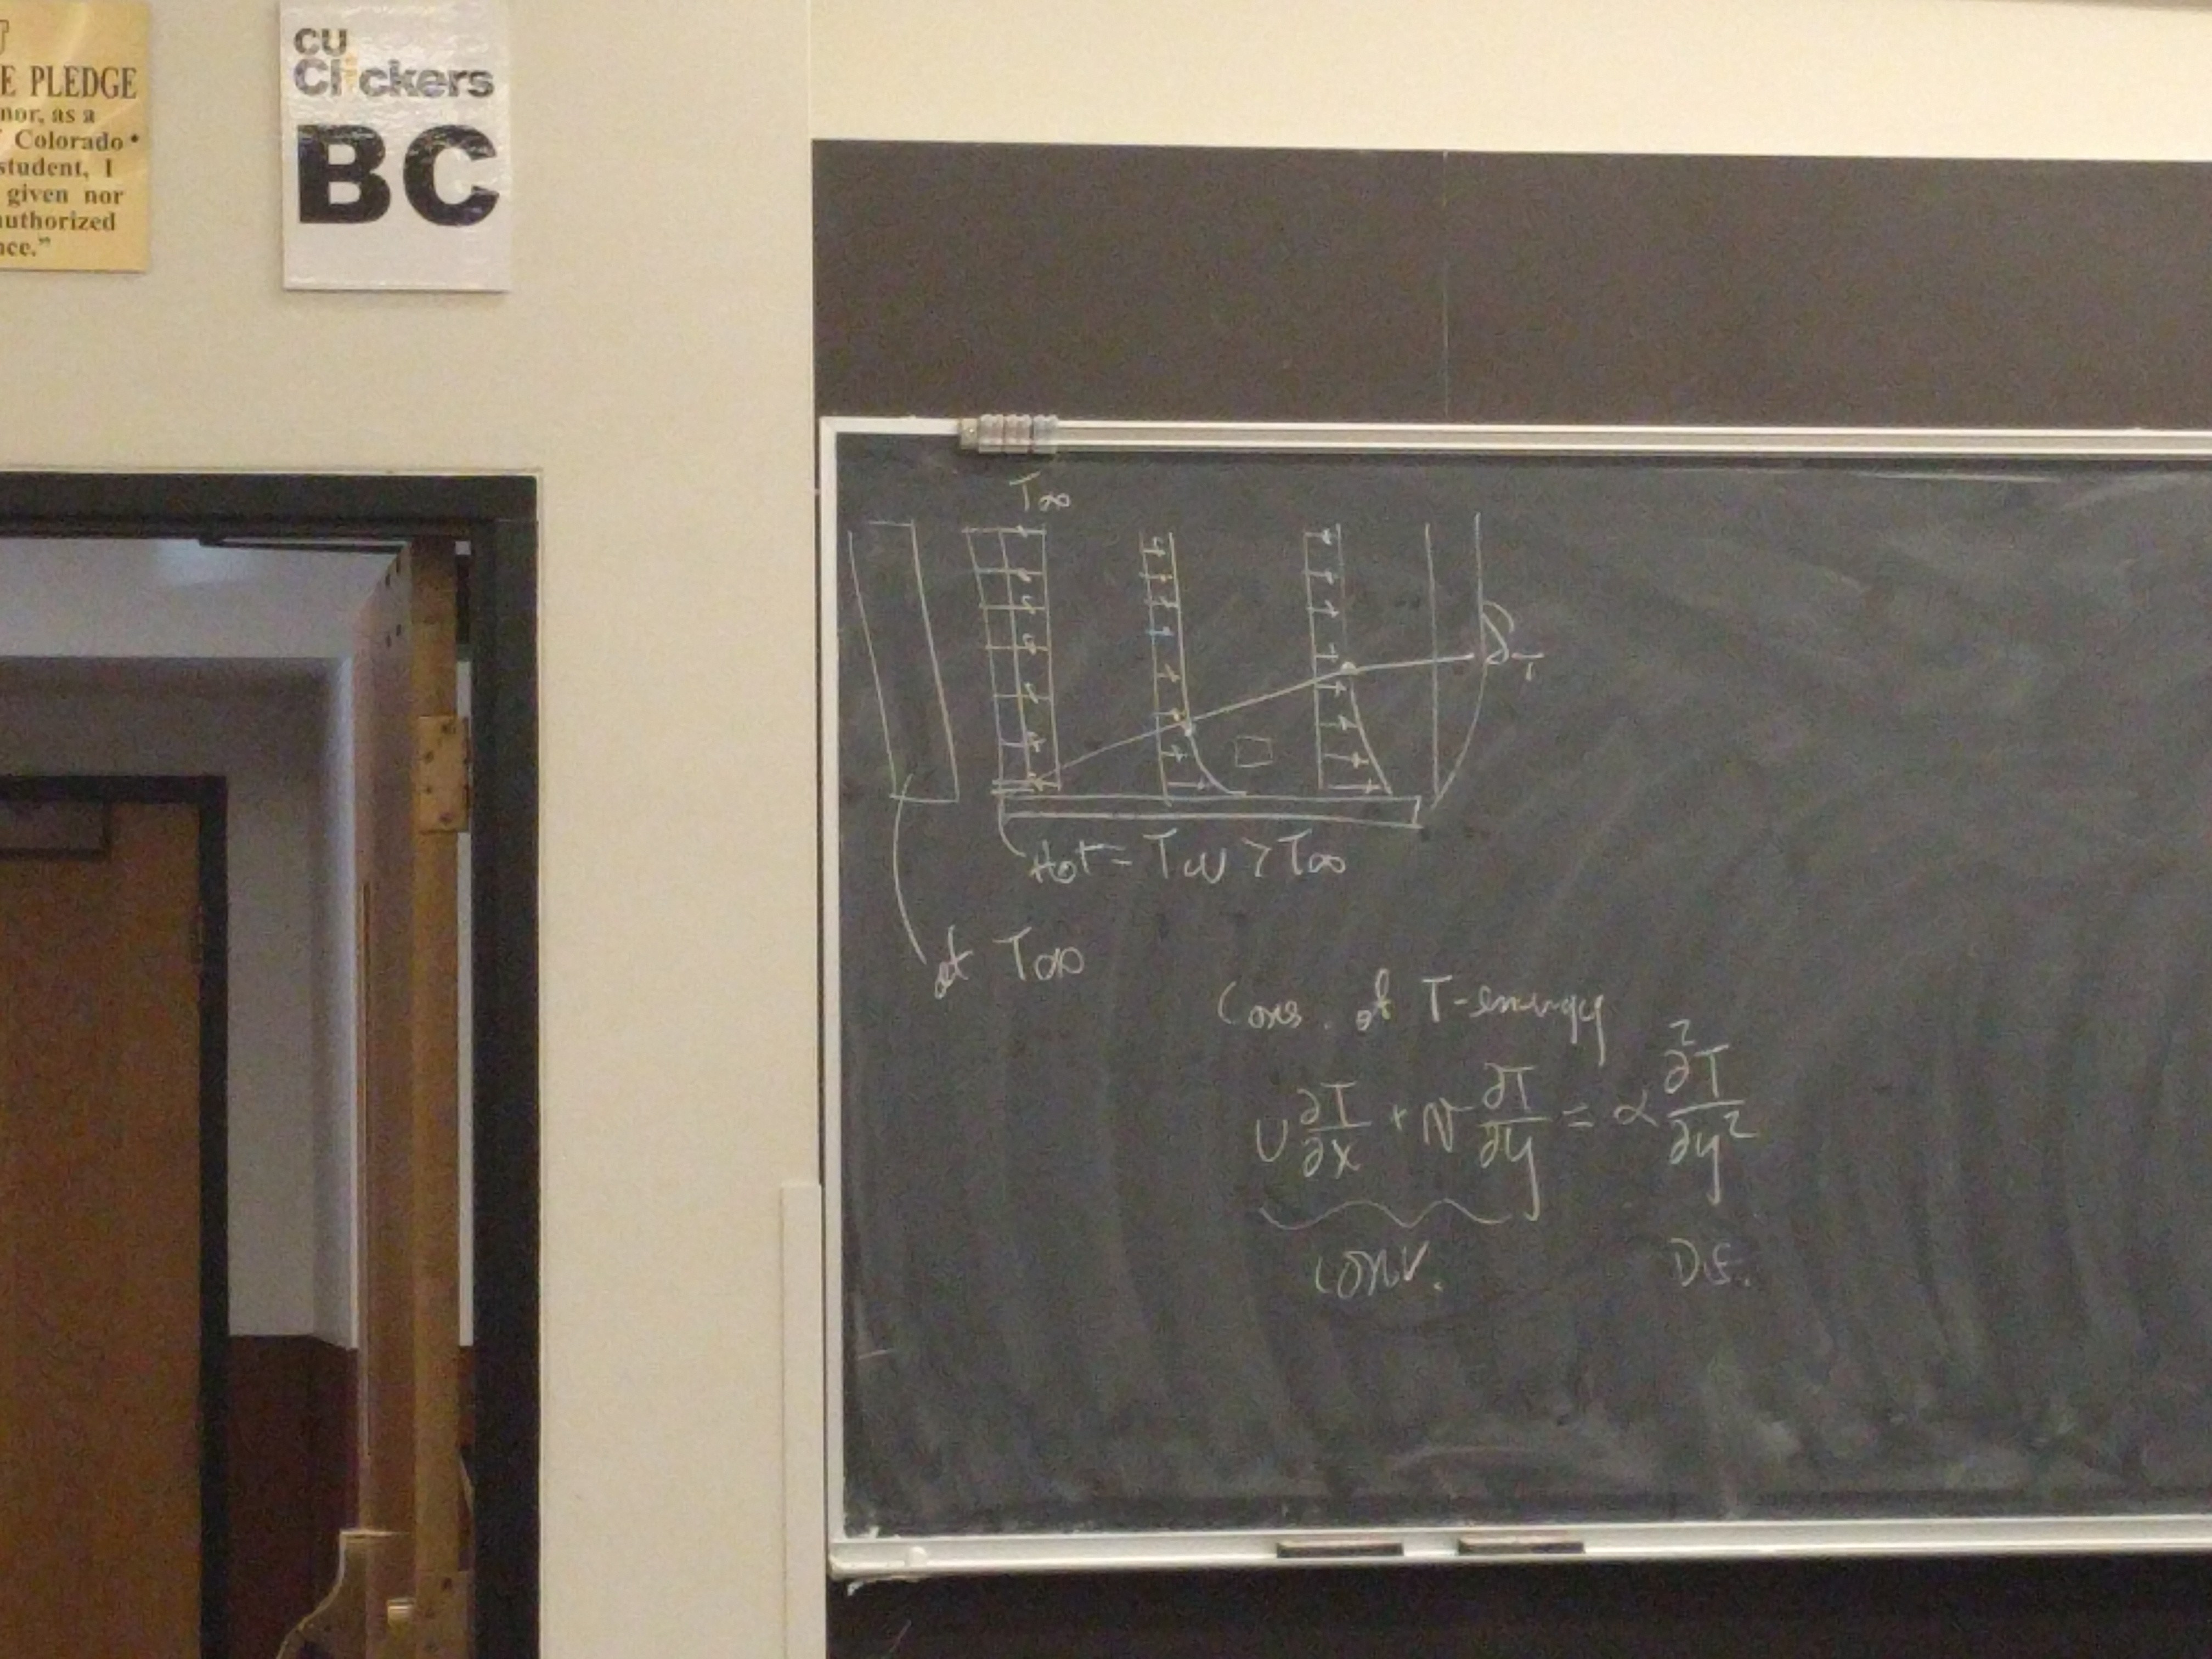 E PLEDGE
nor, as a
Colorado •
student, I
given nor
authorized
nce."
CU
Clickers
BC
T∞
δ_T
Hot = Tw > T∞
at T∞
Cons. of T-energy
u ∂T/∂x + v ∂T/∂y = α ∂²T/∂y²
conv.
Dif.